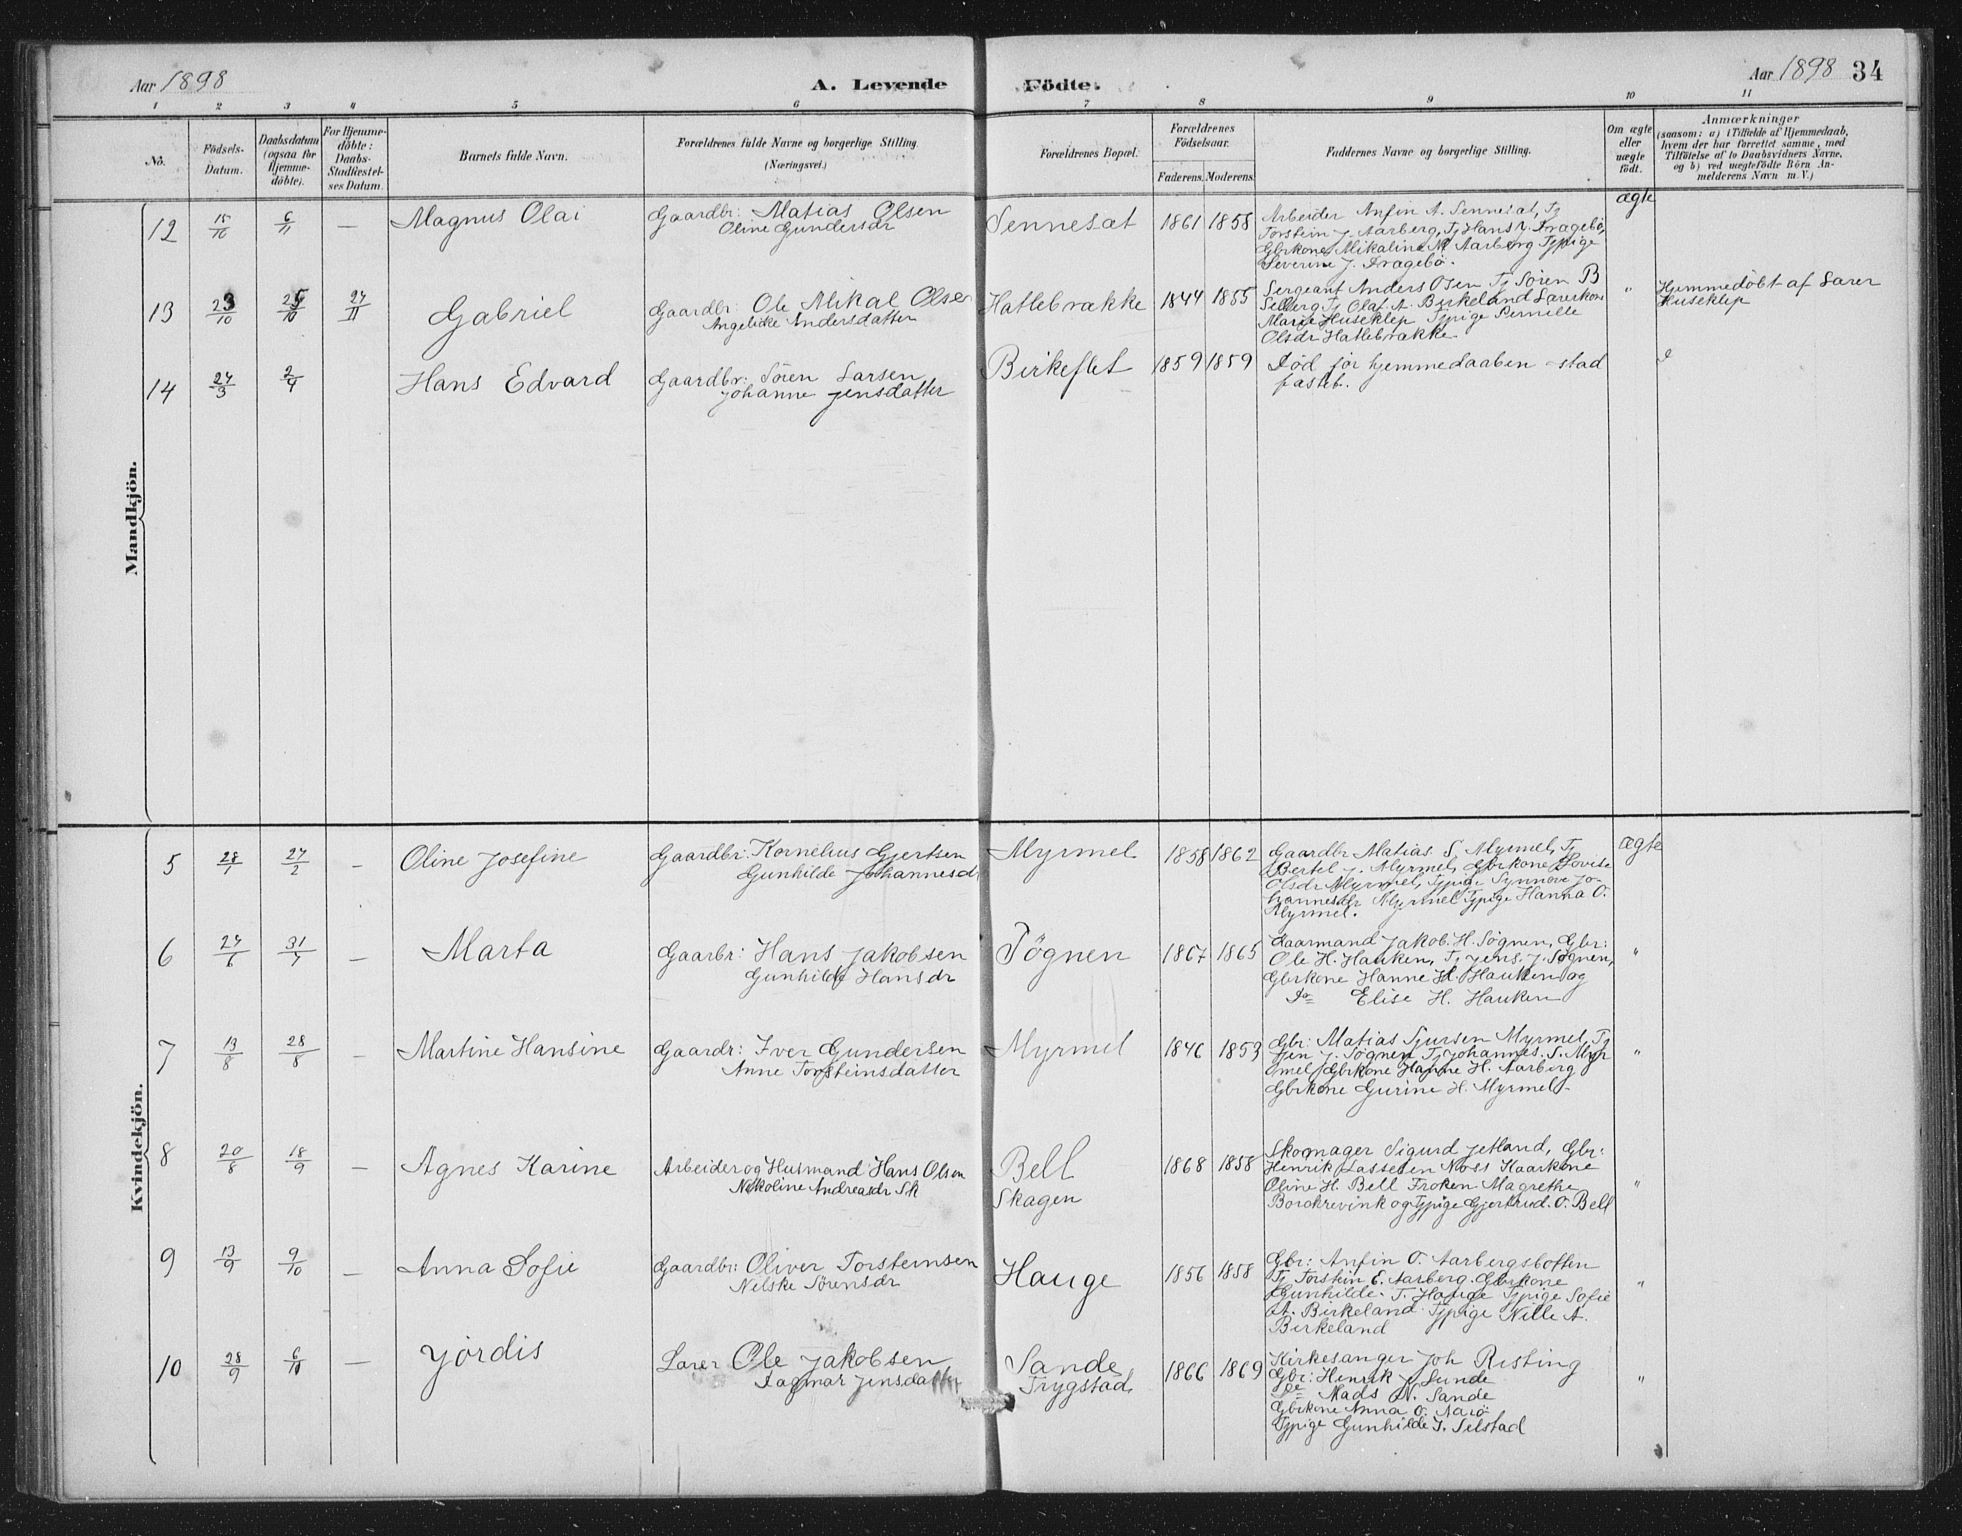 Aar 1898
A. Levende Födte.
Aar 1898 34
1 2 3 4 5 6 7 8 9 10 11
No.
Födsels-
Datum.
Daabsdatum
(ogsaa for
Hjemme-
döbte).
For Hjemme-
döbte:
Daabs-
Stadfæstel-
ses Datum.
Barnets fulde Navn.
Forældrenes fulde Navne og borgerlige Stilling
(Næringsvei.)
Forældrenes Bopæl.
Forældrenes
Födselsaar.
Faderens. Moderens.
Faddernes Navne og borgerlige Stilling.
Om ægte
eller
uægte
födt.
Anmærkninger
(saasom: a) i Tilfælde af Hjemmedaab,
hvem der har forrettet samme, med
Tilföielse af to Daabsvidners Navne,
og b) ved uægtefödte Börn An-
melderens Navn m. V.)
Mandkjön.
12 15/10 6/11 — Magnus Olai
Gaardbr: Matias Olsen
Oline Gundersdr
Sennesæt 1861 1858
Arbeider Anfin A. Sennesæt, Tj
Torstein J. Aarberg, Tj Hans I. Dragebø,
Gbrkone Mikaline M Aarberg Tjpige
Severine J. Dragebø.
ægte
13 23/10 25/10 27/11 Gabriel
Gaardbr Ole Mikal Olsen
Angelicke Andersdatter
Hatlebrække 1844 1855
Sergeant Anders Osen Tj Sören B
Selberg Tj Olaf A. Birkeland Lærerkone
Marie Huseklep Tjpige Pernille
Olsdr Hatlebrække.
"
Hjemmedöbt af Lærer
Huseklep
14 27/3 2/4 Hans Edvard
Gaardbr: Sören Larsen
Johanne Jensdatter
Birkeflet 1859 1859
Död for hjemmedaaben stad
fæstet.
Kvindekjön.
5 28/1 27/2 — Oline Josefine
Gaardbr: Kornelius Gjertsen
Gunhilde Johannesdr
Myrmel 1858 1862
Gaardbr Matias S. Myrmel, Tj
Bertel J. Myrmel, Gbrkone Lovise
Olsdr Myrmel, Tjpige Synnöve Jo-
hannesdr Myrmel Tjpige Hanna O.
Myrmel.
ægte
6 27/6 31/7 — Marta
Gaarbr: Hans Jakobsen
Gunhilde Hansdr
Søgnen 1867 1865
Kaarmand Jakob H. Søgnen, Gbr:
Ole H. Hauken, Tj Jens J. Søgnen,
Gbrkone Hanne H. Hauken og
Do Elise H. Hauken
"
7 13/8 28/8 — Martine Hansine
Gaardr: Iver Gundersen
Anne Torsteinsdatter
Myrmel 1846 1853
Gbr: Matias Sjursen Myrmel, Tj
Jen J. Søgnen Tj Johannes S. Myr
mel Gbrkone Hanne H. Aarberg
Gbrkone Gurine H. Myrmel.
"
8 20/8 18/9 — Agnes Karine
Arbeider og Husmand Hans Olsen
Nikoline Andreasdr Sk
Bell
Skagen
1868 1858
Skomager Sigurd Jetland, Gbr:
Henrik Lassesen Noss Kaarkone
Oline H. Bell Frøken Magrethe
Borchrevink og Tjpige Gjertrud. O. Bell
"
9 13/9 9/10 — Anna Sofie
Gaardbr: Oliver Torsteinsen
Nelske Sørensdr
Hauge 1856 1858
Gbr: Anfin O. Aarbergsbotten
Tj Torstein E. Aarberg. Gbrkone
Gunhilde. T. Hauge Tjpige Sofie
A. Birkeland Tjpige Nille A.
Birkeland
"
10 28/9 6/10 — Jørdis
Lærer Ole Jakobsen
Dagmar Jensdatter
Sande
Trygstad
1866 1869
Kirkesanger Joh Risting
Gbr: Henrik J. Sunde
Do Mads N. Sande
Gbrkone Anna O. Aarö
Tjpige Gunhilde I. Selstad
"